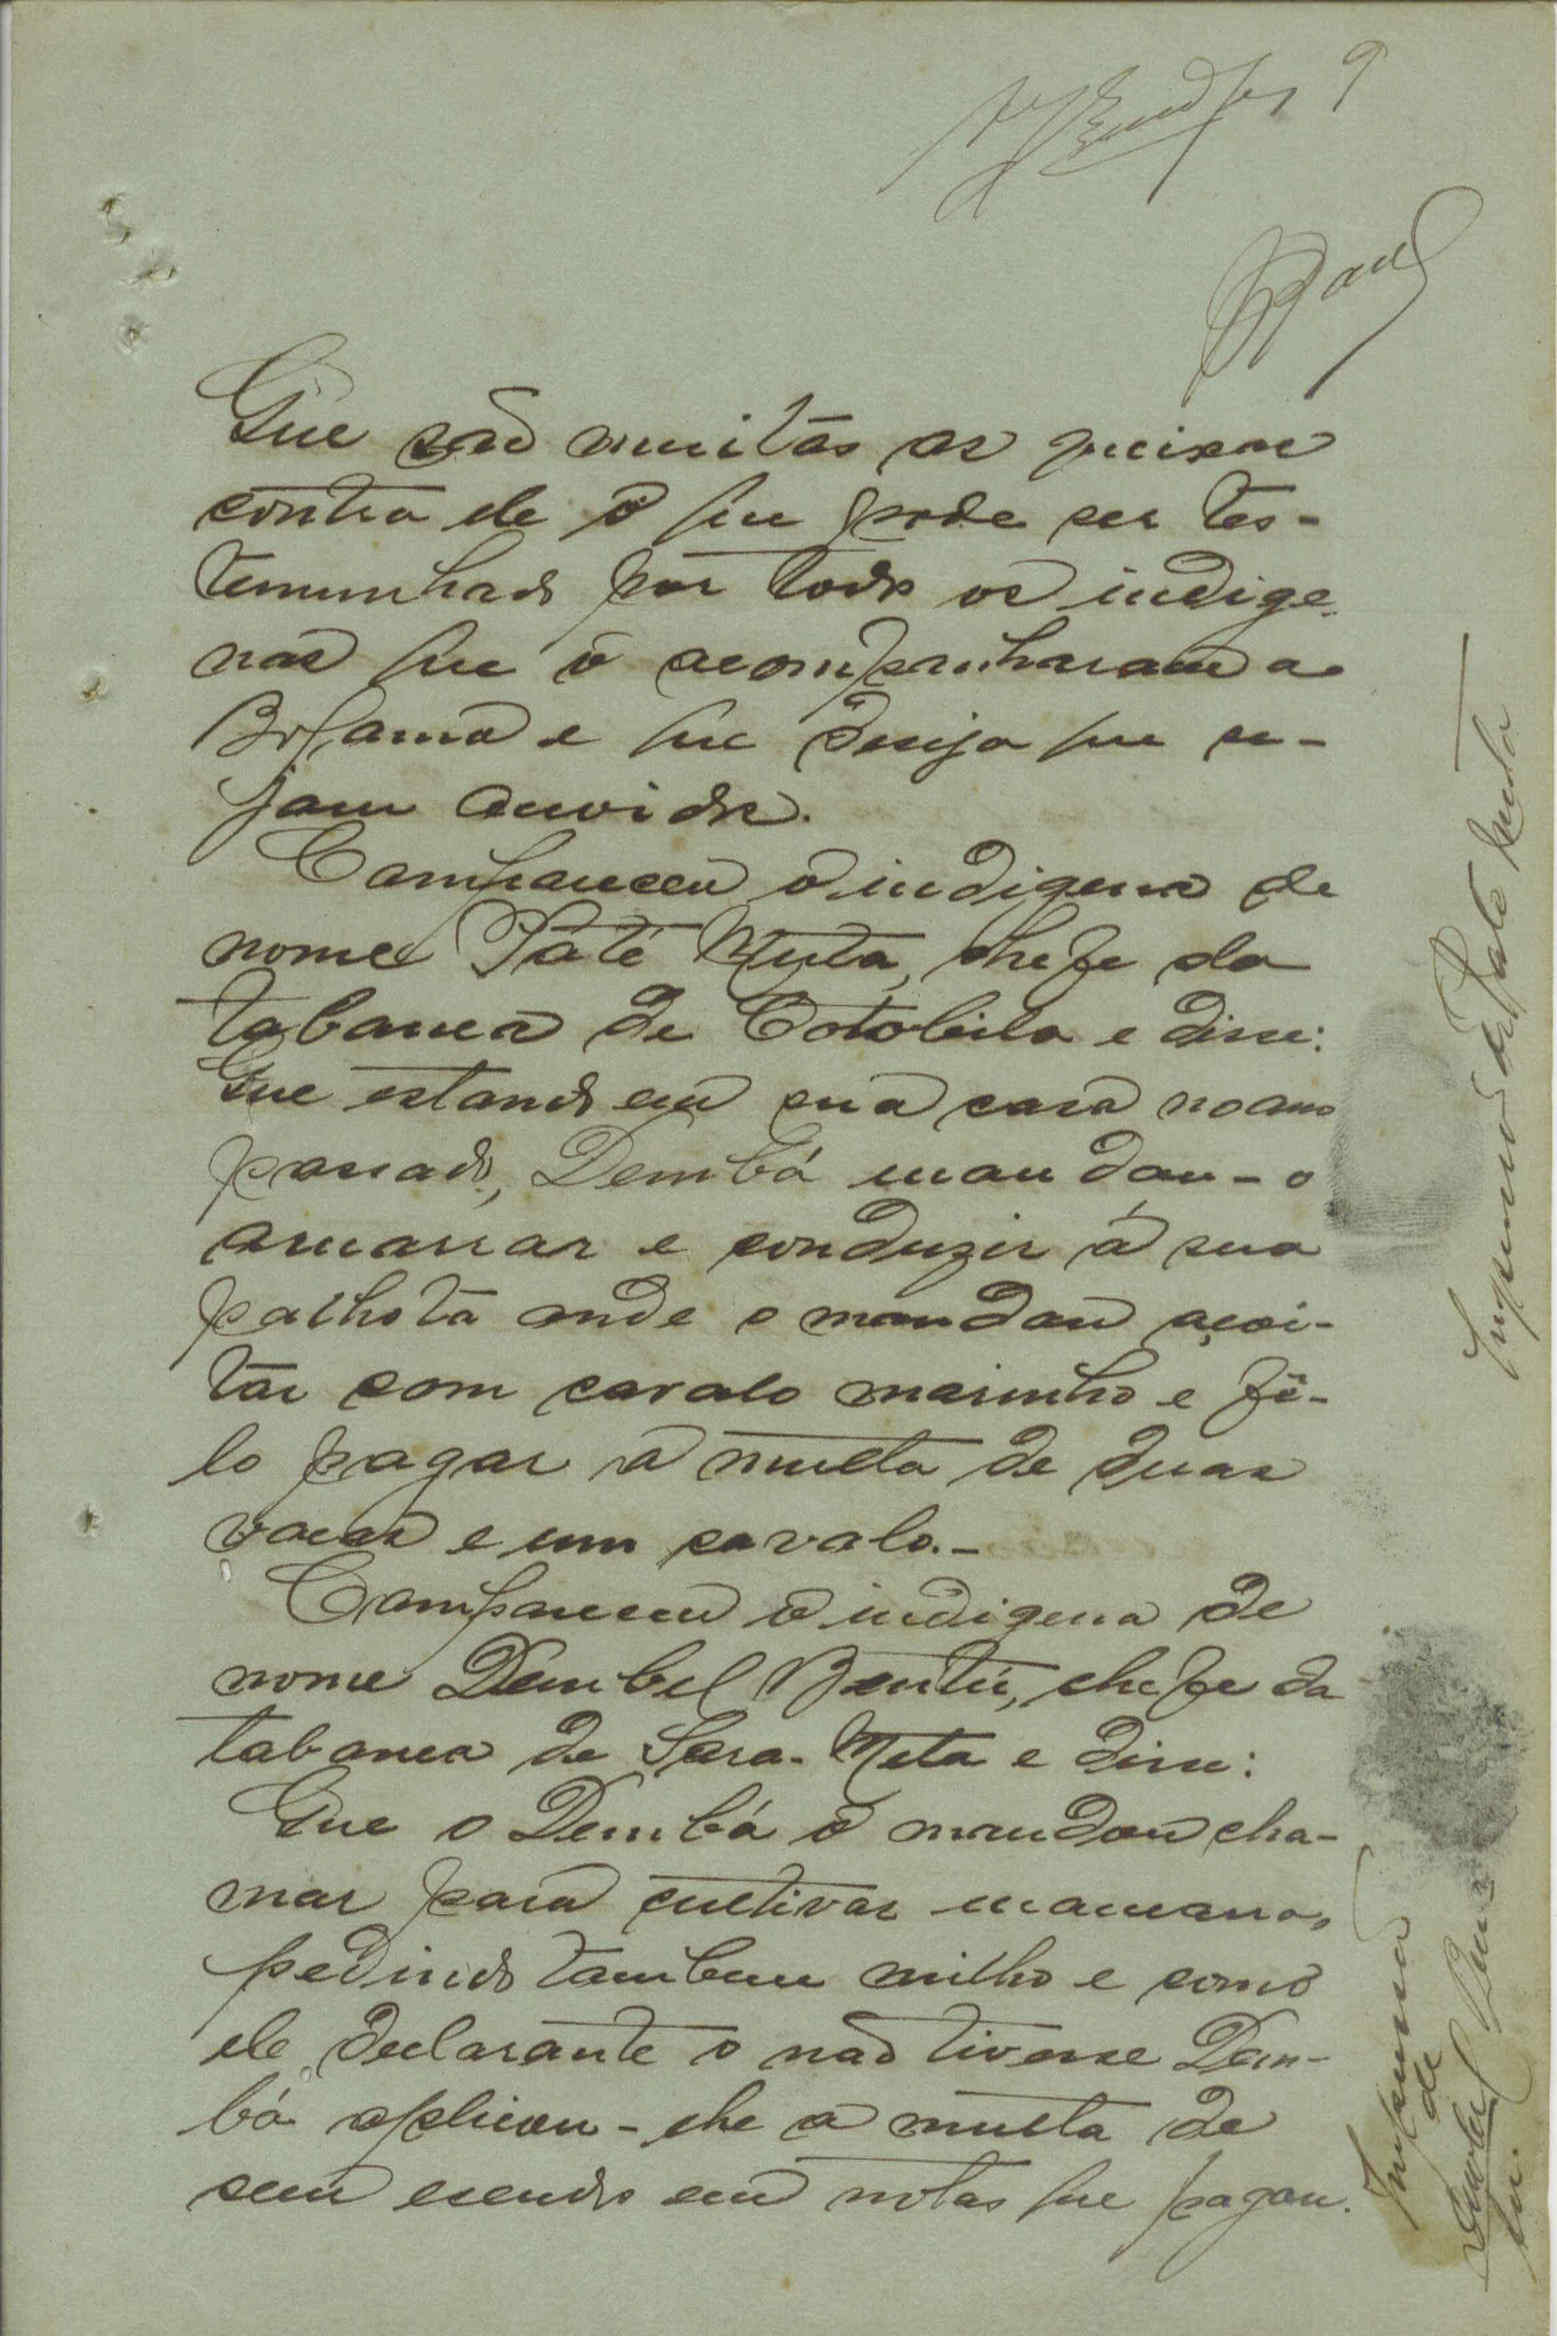 9
Que são muitas as queixas
contra ele o que pode ser tes-
temunhado por todos os indige-
nas que o acompanharam a
Bolama e que deseja que se-
jam ouvidos.
Compareceu o indigena de
nome Paté Muta, chefe da
tabanca de Cotobila e disse:
Que estando em sua casa no ano
passado, Dembá mandou-o
amarrar e conduzir á sua
palhota onde o mandou açoi-
tar com cavalo marinho e fê-
lo pagar a multa de duas
vacas e um cavalo.-
Compareceu o indigena de
nome Dembel Bentú, chefe da
tabanca de Sara-Meta e disse:
Que o Dembá o mandou cha-
mar para cultivar mancarra,
pedindo tambem milho e como
ele declarante o não tivesse Dem-
bá aplicou-lhe a multa de
cem escudos em notas que pagou.
Impressão de Paté Muta
Impressão
de
Dembel Ben-
tú.